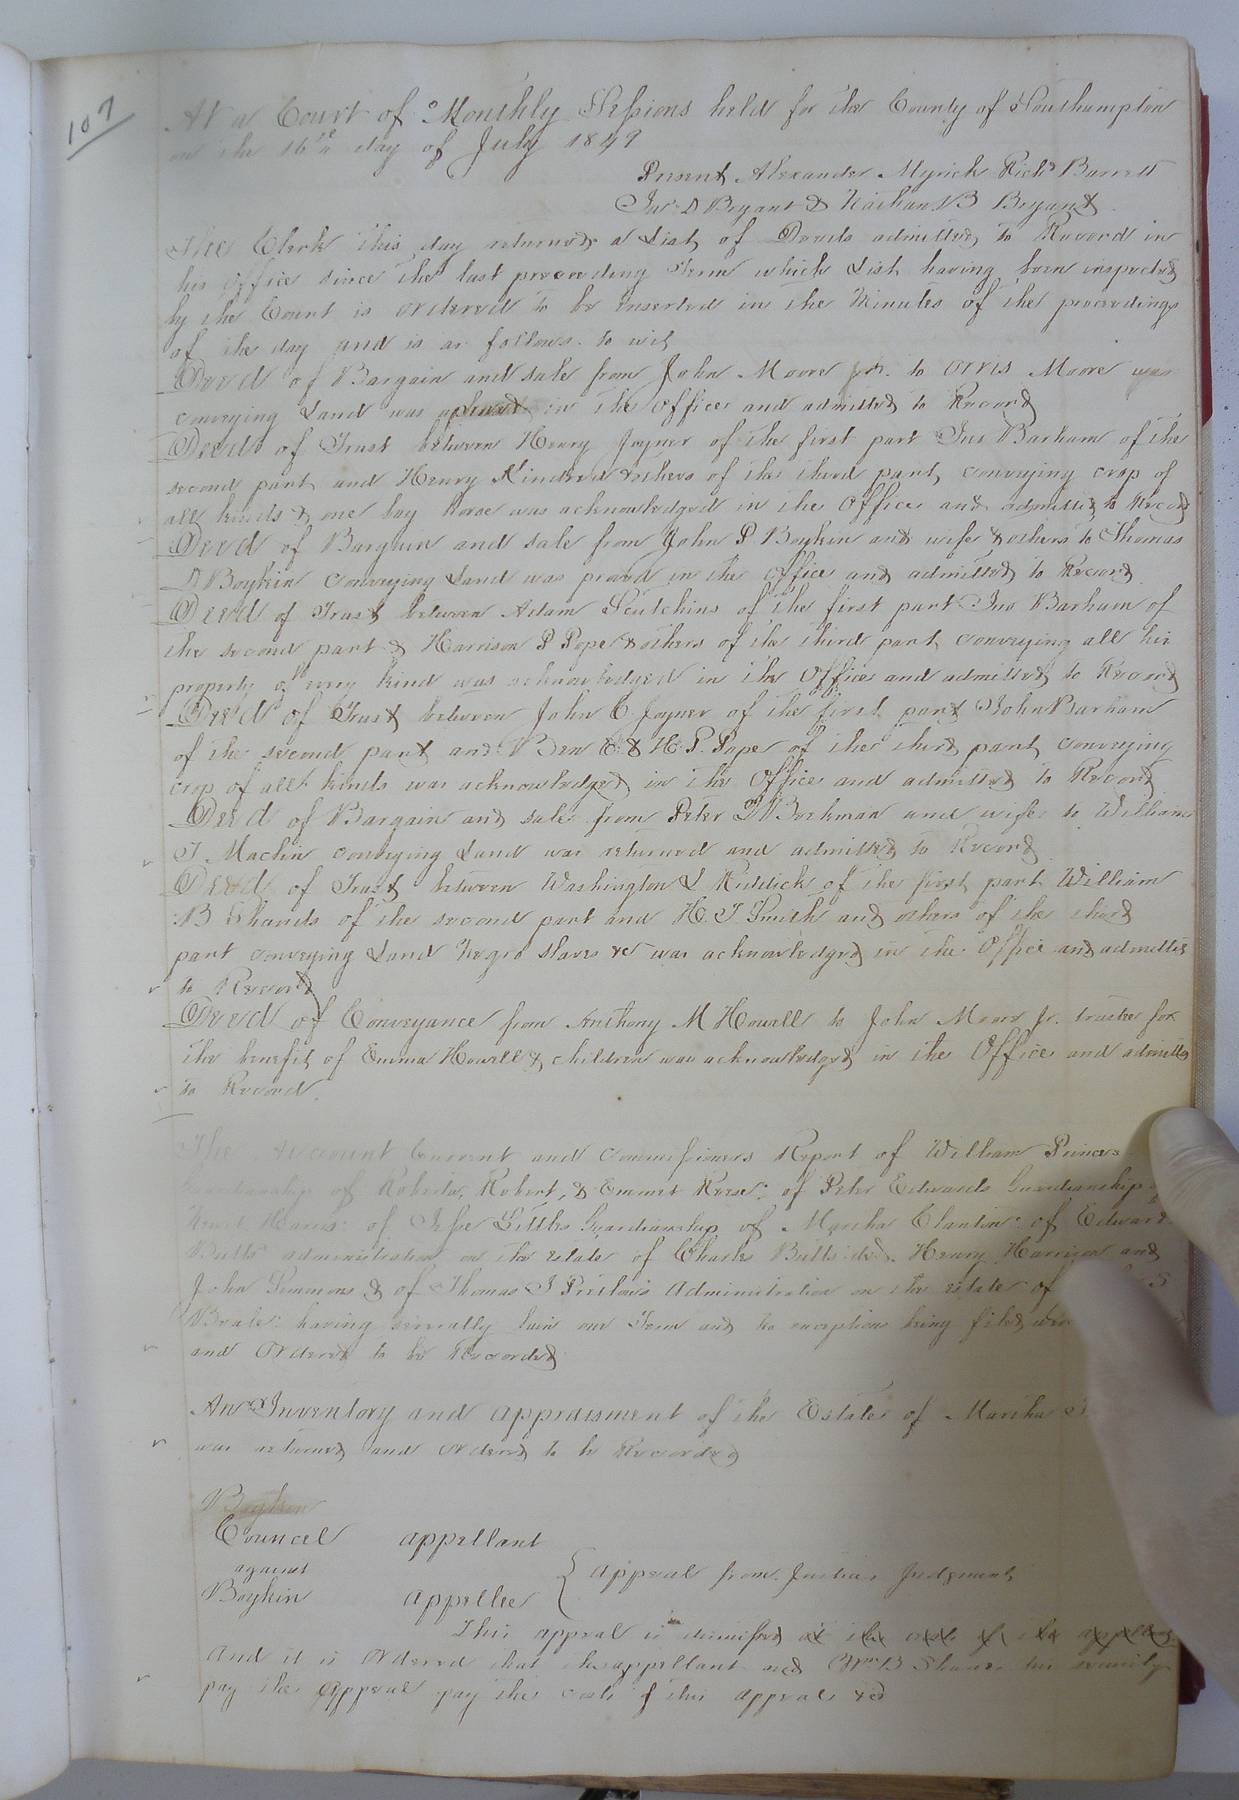 107
At a Court of Monthly Sessions held for the County of Southampton
on the 16th day of July 1849
Present Alexander Myrick Richd Barrett
Jno D Bryant & Nathan B Bryant
The Clerk this day returned a List of Deeds admitted to Record in
his office since the last preceeding Term which List having been inspected
by the Court is ordered to be inserted in the Minutes of the proceedings
of the day and is as follows to wit
Deed of Bargain and sale from John Moore jr. to Orris Moore was
conveying Land was in the office and admitted to Record
Deed of Trust between Henry Joyner of the first part Jno Barham of the
second part and Henry Kindred & others of the third part conveying crop of
all kinds & one bay horse was acknowledged in the Office and admitted to Record
Deed of Bargain and sale from John P Boykin and wife & others to Thomas
D Boykin conveying Land was proved in the Office and admitted to Record
Deed of Trust between Adam Scutchins of the first part Jno Barham of
the second part & Harrison P Pope & others of the third part conveying all his
property of every kind was acknowledged in the Office and admitted to Record
Deed of Trust between John C Joyner of the first part John Barham
of the second part and Ben C. & H. P. Pope of the third part conveying
crop of all kinds was acknowledged in the Office and admitted to Record
Deed of Bargain and sale from Peter Booth man and wife to William
T Machin conveying Land was returned and admitted to Record
Deed of Trust between Washington L Riddick of the first part William
B Shands of the second part and H. T Smith and others of the third
part conveying Land Negro slaves &c was acknowledged in the Office and admitted
to Record
Deed of Conveyance from Anthony M Howell to John Moore Jr. trustee for
the benefit of Emma Howell & children was acknowledged in the Office and admitted
to Record.
The Account Current and Commissioners Report of William Princes
Guardianship of Roberta, Robert, & Emmet Reese: of Peter Edwards Guardianship
Harris: of Jesse Littles Guardianship of Marsha Clanton: of Edward
Butts administration on the estate of Charles Butts decd. Henry Harrison and
John Simmons & of Thomas J Pretlows Administration on the estate of S
Beale: having severally lain one Term and no exceptions being filed
and Ordered to be Recorded
An Inventory and appraisment of the Estate of Martha
was returned and ordered to be Recorded
Boykin
Council appellant
against
Boykin appellee
Appeal from Justices Judgment
This appeal is dismissed at the costs of the appellant
And it is Ordered that the appellant and Wm B Shands his security
pay the appeal pay the costs of this appeal &c